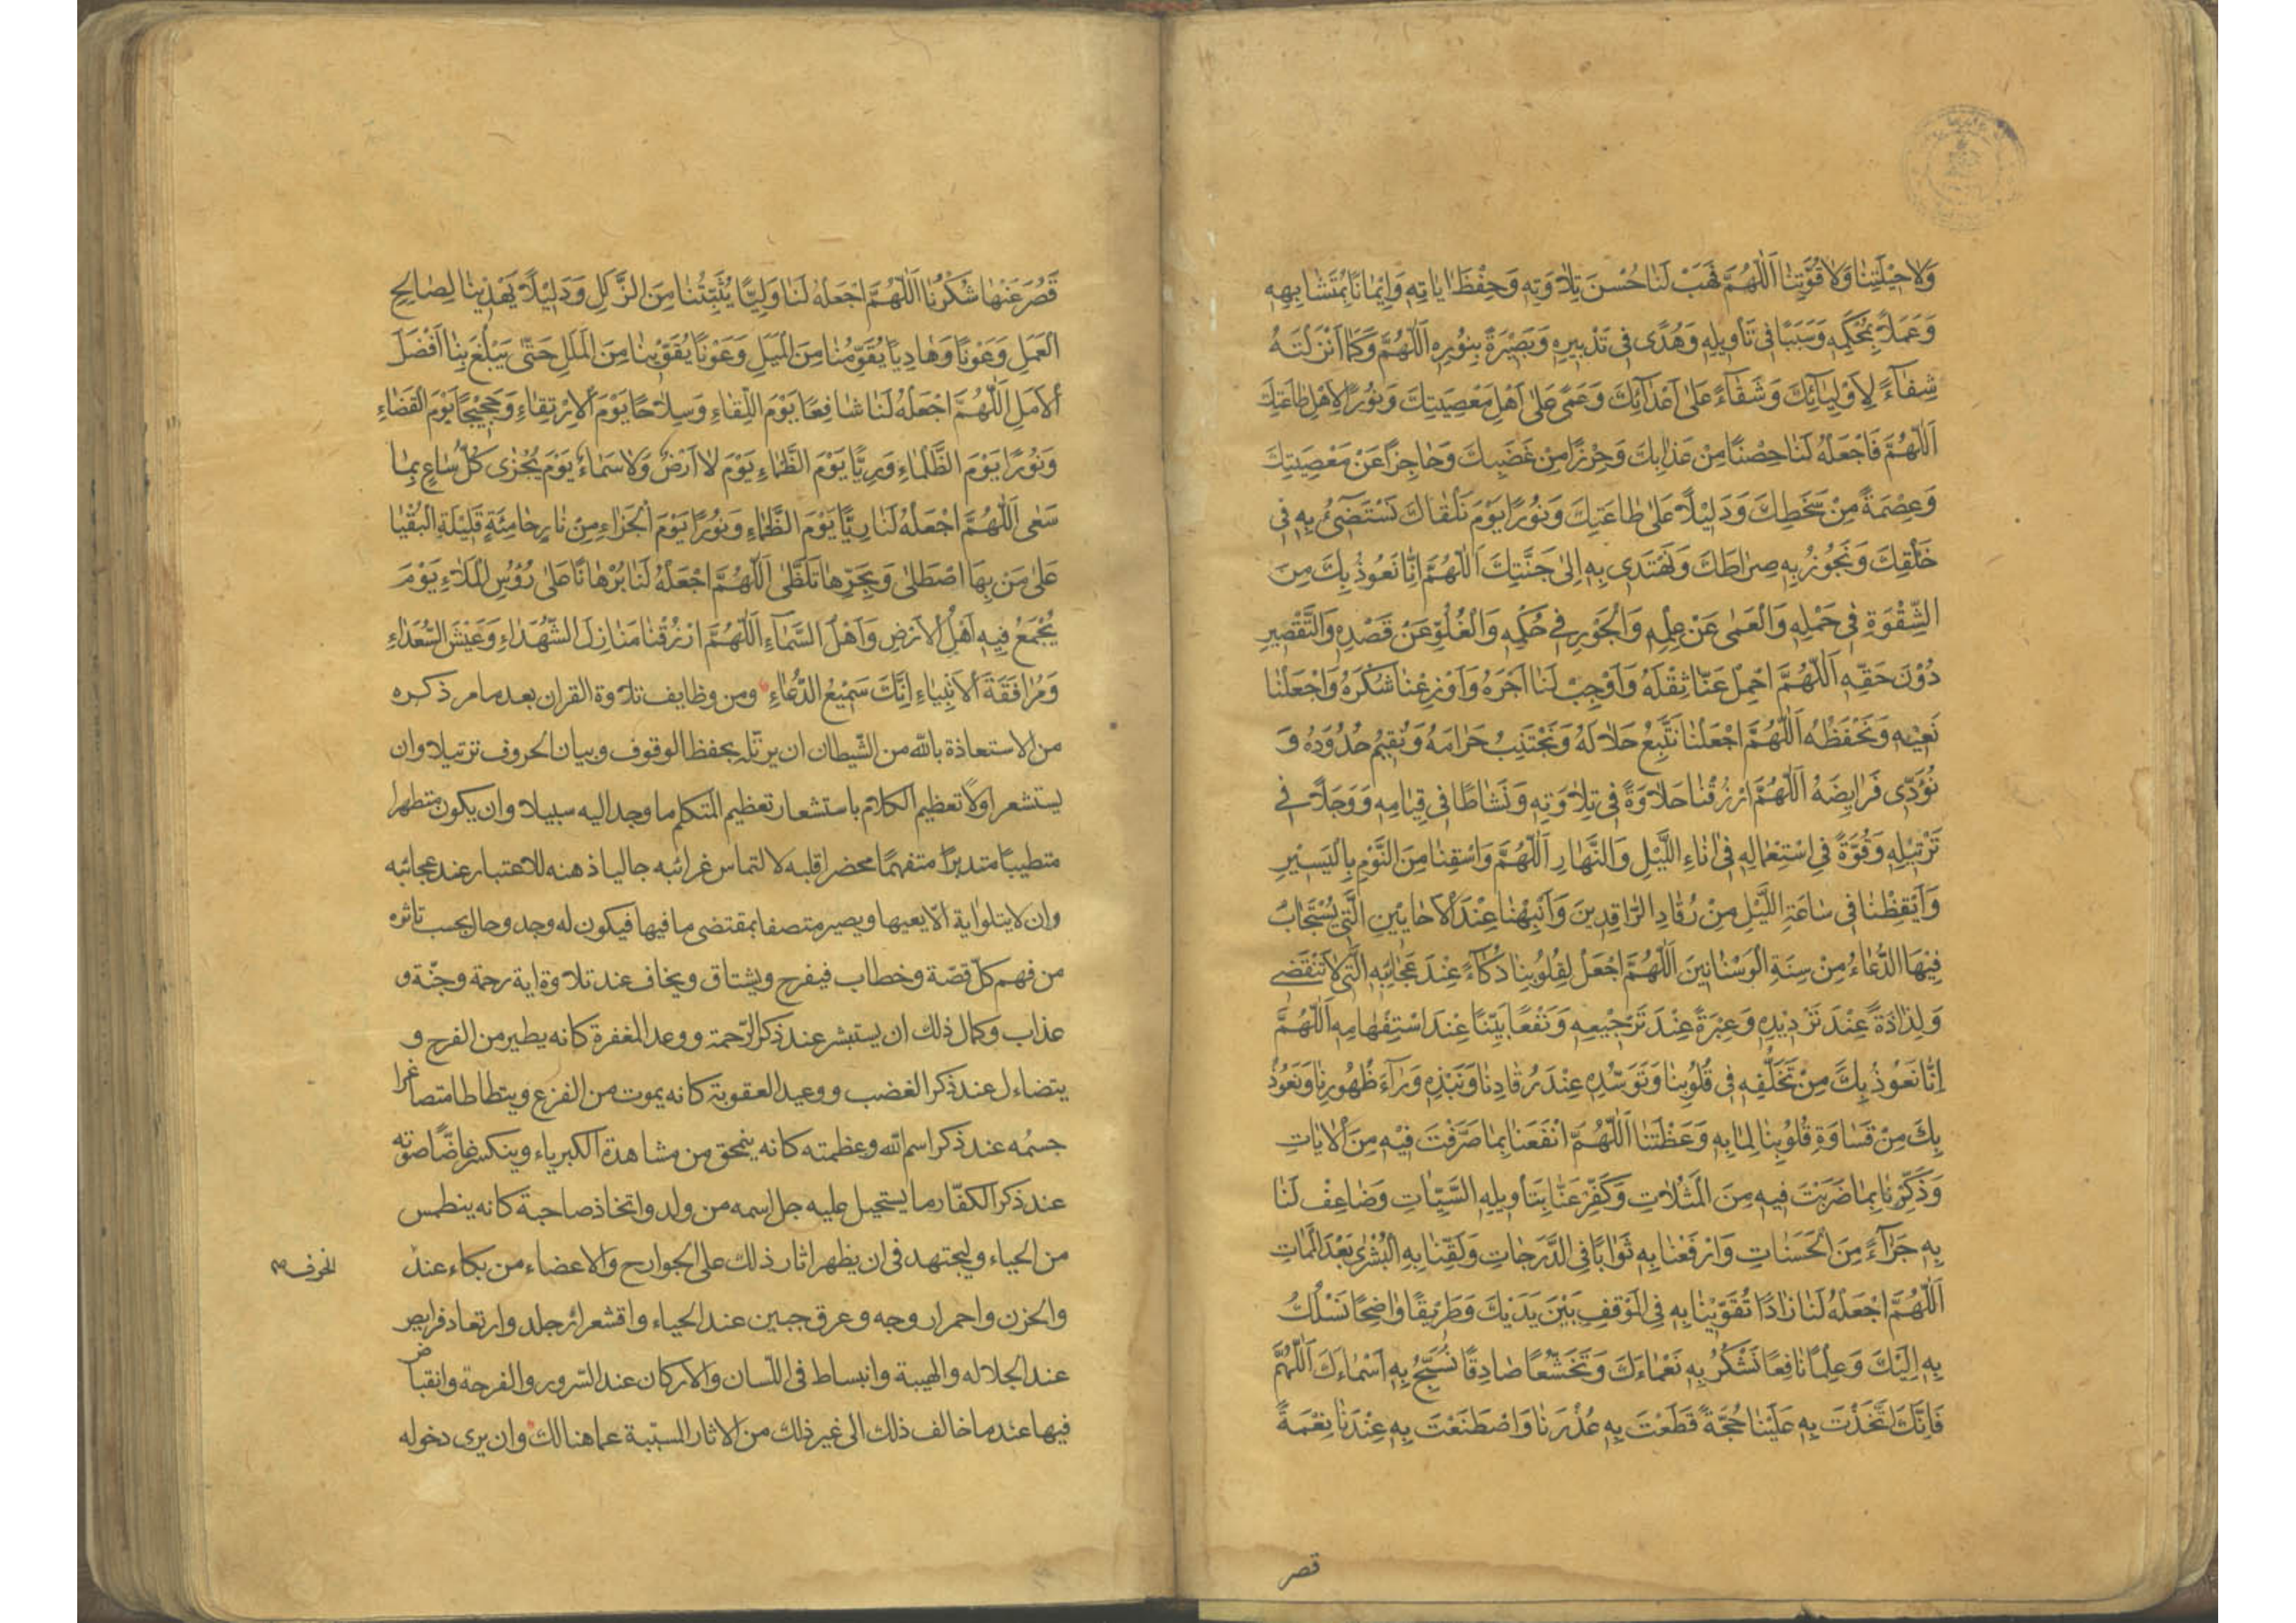 وَلَا حِيْلَتِنَا وَلَا قُوَّتِنَا اَللّٰهُمَّ فَهَبْ لَنَا حُسْنَ تِلَاوَتِهِ وَحِفْظَ اٰيَاتِهِ وَاِيْمَانًا بِمُتَشَابِهِهِ
وَعَمَلًا بِمُحْكَمِهِ وَسَبَبًا فِى تَأْوِيلِهِ وَهُدًى فِى تَدْبِيرِهِ وَبَصِيْرَةً بِنُوْرِهِ اَللّٰهُمَّ وَكَمَا اَنْزَلْتَهُ
شِفَآءً لِاَوْلِيَآئِكَ وَشَقَآءً عَلٰى اَعْدَآئِكَ وَعَمًى عَلٰى اَهْلِ مَعْصِيَتِكَ وَنُوْرًا لِاَهْلِ طَاعَتِكَ
اَللّٰهُمَّ فَاجْعَلْهُ لَنَا حِصْنًا مِنْ عَذَابِكَ وَحِرْزًا مِنْ غَضَبِكَ وَحَاجِزًا عَنْ مَعْصِيَتِكَ
وَعِصْمَةً مِنْ سَخَطِكَ وَدَلِيْلًا عَلٰى طَاعَتِكَ وَنُوْرًا يَوْمَ نَلْقَاكَ نَسْتَضِىْٓءُ بِهِ فِى
خَلْقِكَ وَنَجُوْزُ بِهِ صِرَاطَكَ وَنَهْتَدِى بِهِ اِلٰى جَنَّتِكَ اَللّٰهُمَّ اِنَّا نَعُوْذُ بِكَ مِنَ
الشِّقْوَةِ فِى حَمْلِهِ وَالْعَمٰى عَنْ عِلْمِهِ وَالْجَوْرِ فِى حُكْمِهِ وَالْغُلُوِّ عَنْ قَصْدِهِ وَالتَّقْصِيْرِ
دُوْنَ حَقِّهِ اَللّٰهُمَّ احْمِلْ عَنَّا ثِقْلَهُ وَاَوْجِبْ لَنَا اَجْرَهُ وَاَوْزِعْنَا شُكْرَهُ وَاجْعَلْنَا
نَعِيْهِ وَنَحْفَظُهُ اَللّٰهُمَّ اجْعَلْنَا نَتَّبِعُ حَلَالَهُ وَنَجْتَنِبُ حَرَامَهُ وَنُقِيْمُ حُدُوْدَهُ وَ
نُؤَدِّى فَرَايِضَهُ اَللّٰهُمَّ ارْزُقْنَا حَلَاوَةً فِى تِلَاوَتِهِ وَنَشَاطًا فِى قِيَامِهِ وَوَجَلًا فِى
تَرْتِيْلِهِ وَقُوَّةً فِى اسْتِعْمَالِهِ فِى اٰنَاءِ اللَّيْلِ وَالنَّهَارِ اَللّٰهُمَّ وَاسْقِنَا مِنَ النَّوْمِ بِالْيَسِيْرِ
وَاَيْقِظْنَا فِى سَاعَةِ اللَّيْلِ مِنْ رُقَادِ الرَّاقِدِيْنَ وَاَنْبِهْنَا عِنْدَ الْاَحَايِيْنِ الَّتِى يُسْتَجَابُ
فِيْهَا الدُّعَاءُ مِنْ سِنَةِ الْوَسْنَانِيْنَ اَللّٰهُمَّ اجْعَلْ لِقُلُوْبِنَا ذَكَآءً عِنْدَ عَجَائِبِهِ الَّتِى لَا تَنْقَضِى
وَلِذَاذَةً عِنْدَ تَرْدِيْدِهِ وَعِبْرَةً عِنْدَ تَرْجِيْعِهِ وَنَفْعًا بَيِّنًا عِنْدَ اسْتِفْهَامِهِ اَللّٰهُمَّ
اِنَّا نَعُوْذُ بِكَ مِنْ تَخَلُّفِهِ فِى قُلُوْبِنَا وَتَوَسُّدِهِ عِنْدَ رُقَادِنَا وَنَبْذِهِ وَرَآءَ ظُهُوْرِنَا وَنَعُوْذُ
بِكَ مِنْ قَسَاوَةِ قُلُوْبِنَا لِمَا بِهِ وَعَظْتَنَا اَللّٰهُمَّ انْفَعْنَا بِمَا صَرَّفْتَ فِيْهِ مِنَ الْاٰيَاتِ
وَذَكِّرْنَا بِمَا ضَرَبْتَ فِيهِ مِنَ الْمَثُلَاتِ وَكَفِّرْ عَنَّا بِتَأْوِيلِهِ السَّيِّئَاتِ وَضَاعِفْ لَنَا
بِهِ جَزَآءً مِنَ الْحَسَنَاتِ وَارْفَعْنَا بِهِ ثَوَابًا فِى الدَّرَجَاتِ وَلَقِّنَا بِهِ الْبُشْرٰى بَعْدَ الْمَمَاتِ
اَللّٰهُمَّ اجْعَلْهُ لَنَا زَادًا تُقَوِّيْنَا بِهِ فِى الْمَوْقِفِ بَيْنَ يَدَيْكَ وَطَرِيْقًا وَاضِحًا نَسْلُكُ
بِهِ اِلَيْكَ وَعِلْمًا نَافِعًا نَشْكُرُ بِهِ نَعْمَاءَكَ وَتَخَشُّعًا صَادِقًا نُسَبِّحُ بِهِ اَسْمَاءَكَ اَللّٰهُمَّ
فَاِنَّكَ اتَّخَذْتَ بِهِ عَلَيْنَا حُجَّةً قَطَعْتَ بِهِ عُذْرَنَا وَاصْطَنَعْتَ بِهِ عِنْدَنَا نِعْمَةً
قصر
قَصُرَ عَنْهَا شُكْرُنَا اَللّٰهُمَّ اجْعَلْهُ لَنَا وَلِيًّا يُثَبِّتُنَا مِنَ الزَّلَلِ وَدَلِيْلًا يَهْدِيْنَا لِصَالِحِ
الْعَمَلِ وَعَوْنًا وَهَادِيًا يُقَوِّمُنَا مِنَ الْمَيَلِ وَعَوْنًا يُقَوِّيْنَا مِنَ الْمَلَلِ حَتّٰى يَبْلُغَ بِنَا اَفْضَلَ
الْاَمَلِ اَللّٰهُمَّ اجْعَلْهُ لَنَا شَافِعًا يَوْمَ اللِّقَاءِ وَسِلَاحًا يَوْمَ الْاِرْتِقَاءِ وَحَجِيْجًا يَوْمَ الْقَضَاءِ
وَنُوْرًا يَوْمَ الظَّلْمَاءِ وَرِيًّا يَوْمَ الظَّمَاءِ يَوْمَ لَا اَرْضٌ وَلَا سَمَاءٌ يَوْمَ يُجْزٰى كُلُّ سَاعٍ بِمَا
سَعٰى اَللّٰهُمَّ اجْعَلْهُ لَنَا رِيًّا يَوْمَ الظَّمَاءِ وَنُوْرًا يَوْمَ الْجَزَاءِ مِنْ نَارٍ حَامِيَةٍ قَلِيْلَةِ الْبُقْيَا
عَلٰى مَنْ بِهَا اصْطَلٰى وَبِحَرِّهَا تَلَظّٰى اَللّٰهُمَّ اجْعَلْهُ لَنَا بُرْهَانًا عَلٰى رُؤُسِ الْمَلَاءِ يَوْمَ
يُجْمَعُ فِيهِ اَهْلُ الْاَرْضِ وَاَهْلُ السَّمَآءِ اَللّٰهُمَّ ارْزُقْنَا مَنَازِلَ الشُّهَدَاءِ وَعَيْشَ السُّعَدَاءِ
وَمُرَافَقَةَ الْاَنْبِيَاءِ اِنَّكَ سَمِيْعُ الدُّعَاءِ ومن وظايف تلاوة القران بعد ما مر ذكره
من الاستعاذة بالله من الشّيطان ان يرتّله بحفظ الوقوف وبيان الحروف ترتيلا وان
يستشعر اولًا تعظيم الكلام باستشعار تعظيم المتكلم ما وجد اليه سبيلا وان يكون متطهرا
متطيبًا متدبرًا متفهمًا محضرا قلبه لالتماس غرائبه جاليا ذهنه للاعتبار عند عجائبه
وان لا يتلو اية الّا يعيها ويصير متصفا بمقتضى ما فيها فيكون له وجد وحال بحسب تاثره
من فهم كلّ قصّة وخطاب فيفرح ويشتاق ويخاف عند تلاوة اية رحمة وجنّة و
عذاب وكمال ذلك ان يستبشر عند ذكر الرّحمة ووعد المغفرة كانه يطير من الفرح و
يتضاءل عند ذكر الغضب ووعيد العقوبة كانه يموت من الفزع ويتطاطا متصاغرا
جسمُه عند ذكر اسم الله وعظمته كانه ينمحق من مشاهدة الكبرياء وينكسر غاضًّا صوته
عند ذكر الكفّار ما يستحيل عليه جل اسمه من ولد واتخاذ صاحبة كانه ينطمس
من الحياء وليجتهد فى ان يظهر اثار ذلك على الجوارح والاعضاء من بكاء عند
الخوف
والحزن واحمرار وجه وعرق جبين عند الحياء واقشعرار جلد وارتعاد فرايص
عند الجلاله والهيبة وانبساط فى اللّسان والاركان عند السّرور والفرحة وانقباض
فيها عند ما خالف ذلك الى غير ذلك من الاثار المسبّبة عما هنالك وان يرى دخوله